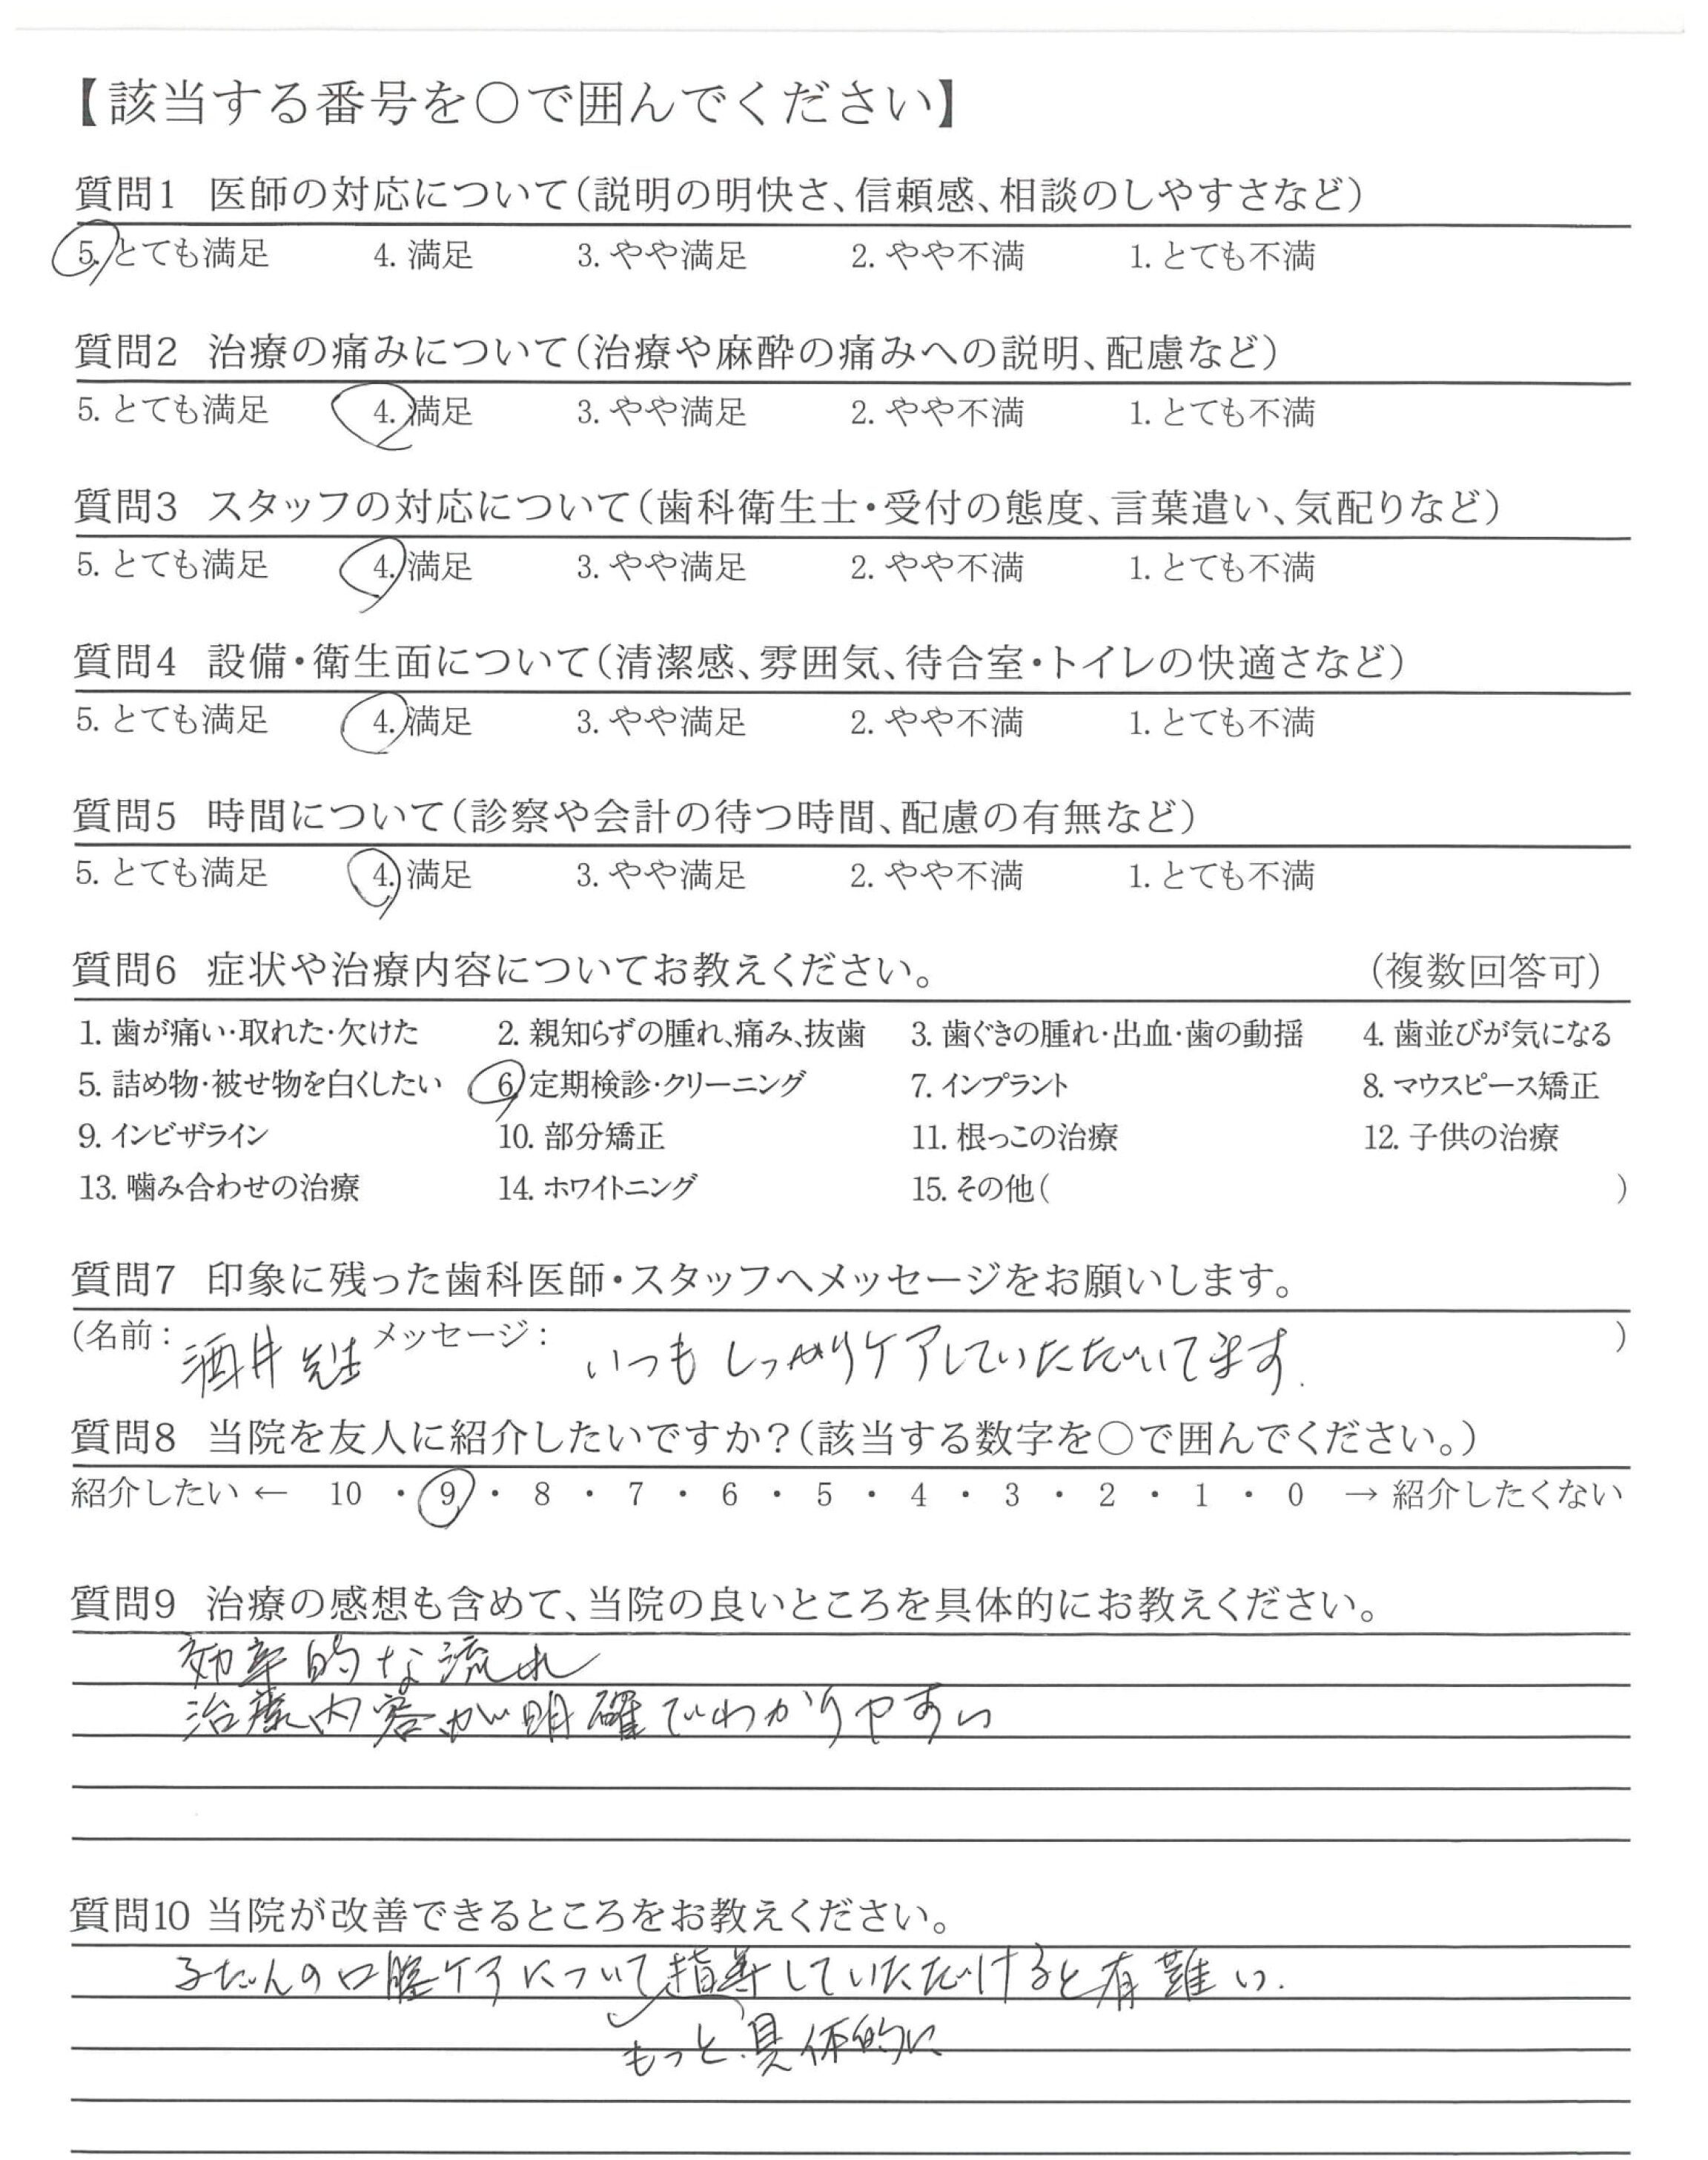 【該当する番号を○で囲んでください】
質問1 医師の対応について(説明の明快さ、信頼感、相談のしやすさなど)
5. とても満足 4. 満足 3. やや満足 2. やや不満 1. とても不満
質問2 治療の痛みについて(治療や麻酔の痛みへの説明、配慮など)
5. とても満足 4. 満足 3. やや満足 2. やや不満 1. とても不満
質問3 スタッフの対応について(歯科衛生士・受付の態度、言葉遣い、気配りなど)
5. とても満足 4. 満足 3. やや満足 2. やや不満 1. とても不満
質問4 設備・衛生面について(清潔感、雰囲気、待合室・トイレの快適さなど)
5. とても満足 4. 満足 3. やや満足 2. やや不満 1. とても不満
質問5 時間について(診察や会計の待つ時間、配慮の有無など)
5. とても満足 4. 満足 3. やや満足 2. やや不満 1. とても不満
質問6 症状や治療内容についてお教えください。 (複数回答可)
1. 歯が痛い・取れた・欠けた 2. 親知らずの腫れ、痛み、抜歯 3. 歯ぐきの腫れ・出血・歯の動揺 4. 歯並びが気になる
5. 詰め物・被せ物を白くしたい 6. 定期検診・クリーニング 7. インプラント 8. マウスピース矯正
9. インビザライン 10. 部分矯正 11. 根っこの治療 12. 子供の治療
13. 噛み合わせの治療 14. ホワイトニング 15. その他( )
質問7 印象に残った歯科医師・スタッフへメッセージをお願いします。
(名前: 酒井先生 メッセージ: いつもしっかりケアしていただいてます. )
質問8 当院を友人に紹介したいですか?(該当する数字を○で囲んでください。)
紹介したい ← 10 ・ 9 ・ 8 ・ 7 ・ 6 ・ 5 ・ 4 ・ 3 ・ 2 ・ 1 ・ 0 → 紹介したくない
質問9 治療の感想も含めて、当院の良いところを具体的にお教えください。
効率的な流れ
治療内容が明確でわかりやすい
質問10 当院が改善できるところをお教えください。
ふだんの口腔ケアについて指導していただけると有難い.
もっと具体的に